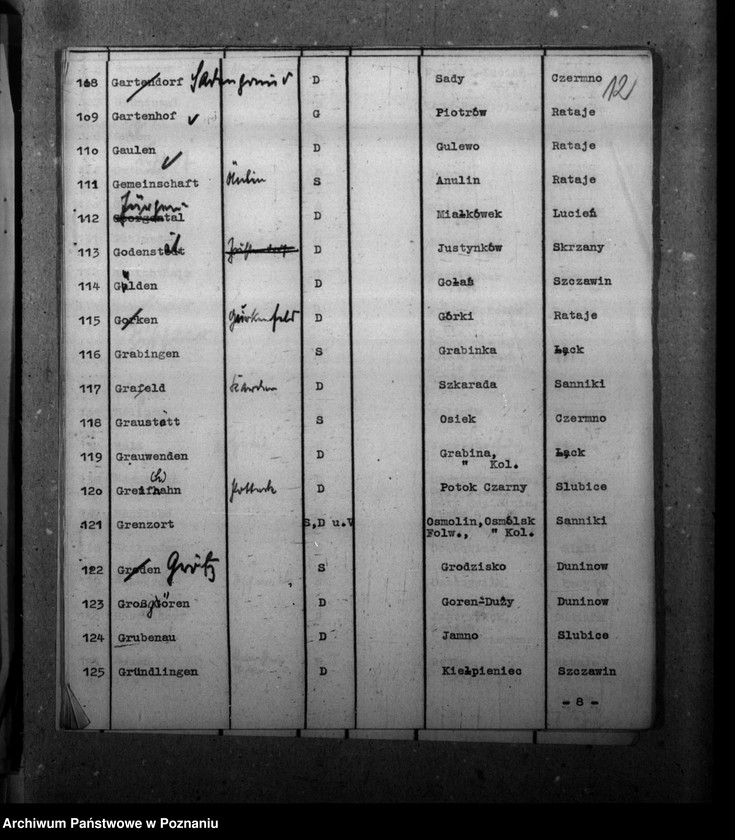 12
108 Gartendorf D Sady Czermno
109 Gartenhof G Piotrów Rataje
110 Gaulen D Gulewo Rataje
111 Gemeinschaft S Anulin Rataje
112 D Miałkówek Lucień
113 Godenstedt D Justynków Skrzany
114 Gülden D Gołaś Szczawin
115 Gorken Gurkenfeld D Górki Rataje
116 Grabingen S Grabinka Łąck
117 Grafeld D Szkarada Sanniki
118 Graustatt S Osiek Czermno
119 Grauwenden D Grabina, Łąck
" Kol.
120 Greifhahn D Potok Czarny Slubice
121 Grenzort S,D u.V Osmolin,Osmólsk Sanniki
Folw., " Kol.
122 Groden Grötz S Grodzisko Duninow
123 Großgören D Goren-Duży Duninow
124 Grubenau D Jamno Slubice
125 Gründlingen D Kiełpieniec Szczawin
- 8 -
Archiwum Państwowe w Poznaniu